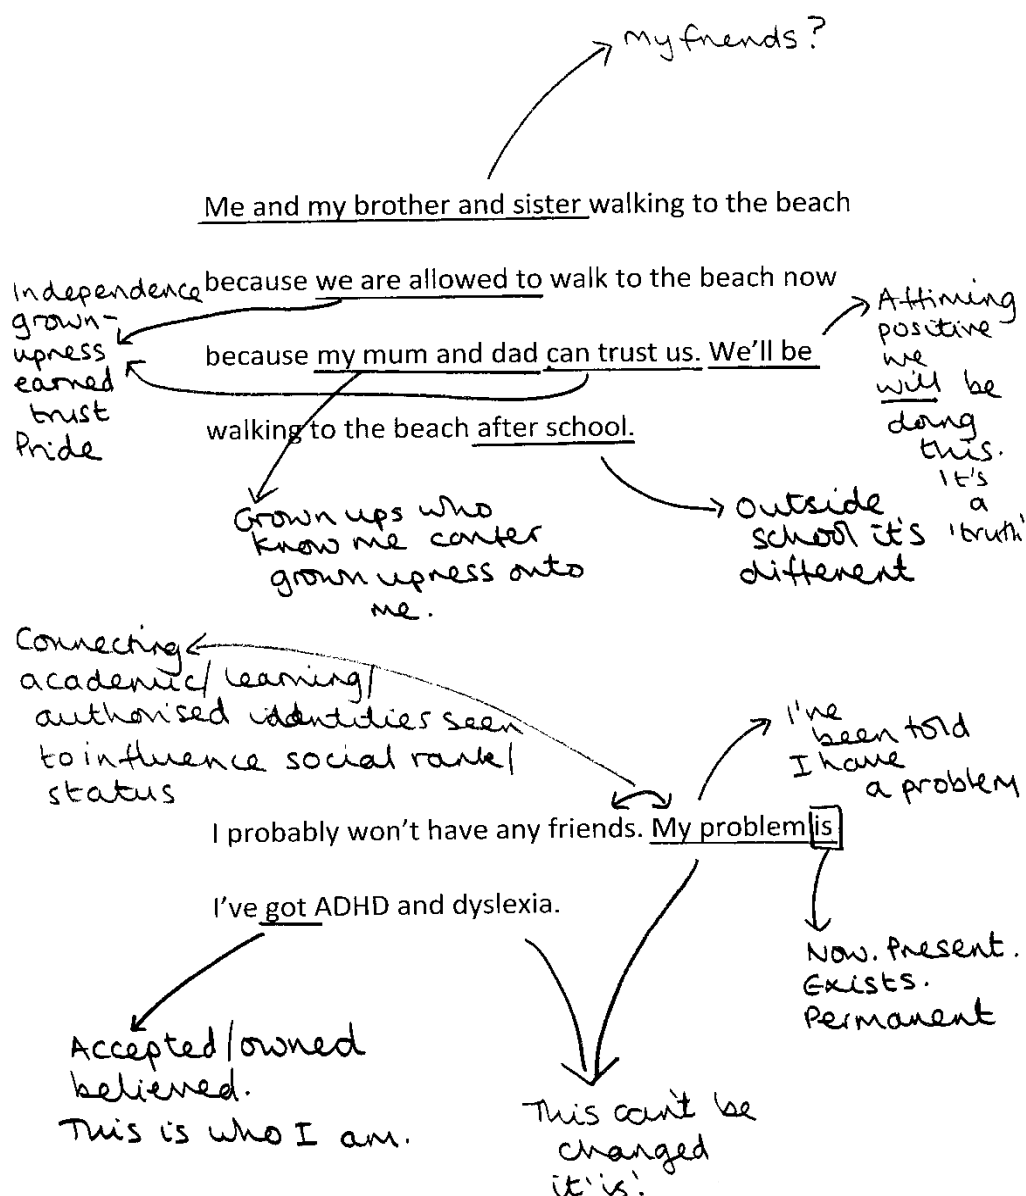 My friends?
Me and my brother and sister walking to the beach
because we are allowed to walk to the beach now
because my mum and dad can trust us. We'll be
walking to the beach after school.
Independence
grown-
upness
earned
trust
Pride
Affiming
positive
we
will be
doing
this.
It's
a
'truth'
Grown ups who
know me confer
grown upness onto
me.
Outside
school it's
different
Connecting
academic/learning/
authorised identities seen
to influence social rank/
status
I've
been told
I have
a problem
I probably won't have any friends. My problem is
I've got ADHD and dyslexia.
Now. Present.
Exists.
Permanent
Accepted/owned
believed.
This is who I am.
This can't be
changed
it 'is'.